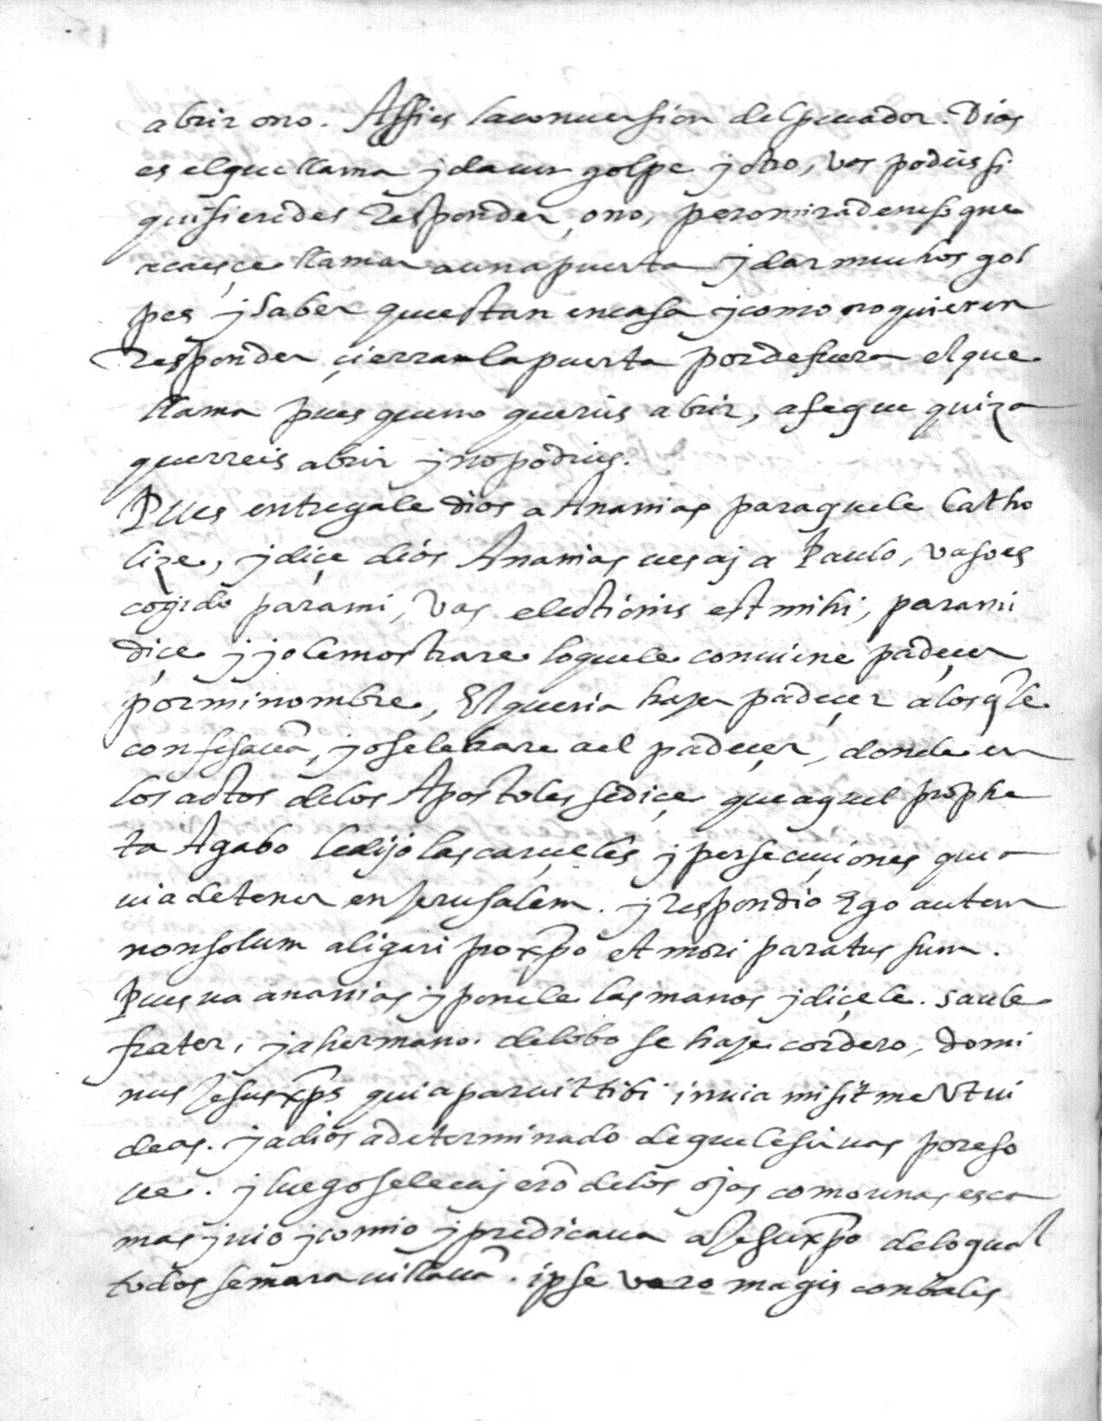 abrir o no. Assi es la conuersion del peccador. Dios
es el que llama y da un golpe y otro, vos podeis si
quisieredes Responder, o no, pero mirad en eso que
acaesçe llamar a una puerta y dar muchos gol
pes y saber que estan en casa y como no quieren
Responder çierra la puerta por defuera el que
llama pues que no quereis abrir, a fe que quiza
querreis abrir y no podreis.
Pues entregale dios a Ananias para que le Catho
lize, y diçe dios Ananias ues aj a Paulo, vaso es
cogido para mi, Vas electionis est mihi, para mi
diçe y yo le mostrare lo que le conuiene padeçer
por mi nombre, El queria hazer padeçer a los q̃ le
confesauã, yo se le hare a el padeçer, donde en
los actos de los Apostoles se diçe, que aquel prophe
ta Agabo le dijo las carçeles y persecuçiones que a
uia de tener en Jerusalem. y Respondio Ego autem
non solum aligari pro xp̃o et mori paratus sum.
Pues ua ananias y ponele las manos y diçele. saule
frater, ya hermano. de lobo se haze cordero, domi
nus Jesus xp̃s qui aparuit tibi in uia misit me Vt ui
deas. ya dios a determinado de que le siruas por eso
ue. y luego se le cajerõ de los ojos como unas esca
mas y uio y comio y predicaua a Jesuxp̃o de lo qual
todos se marauillauã. ipse vero magis conbales